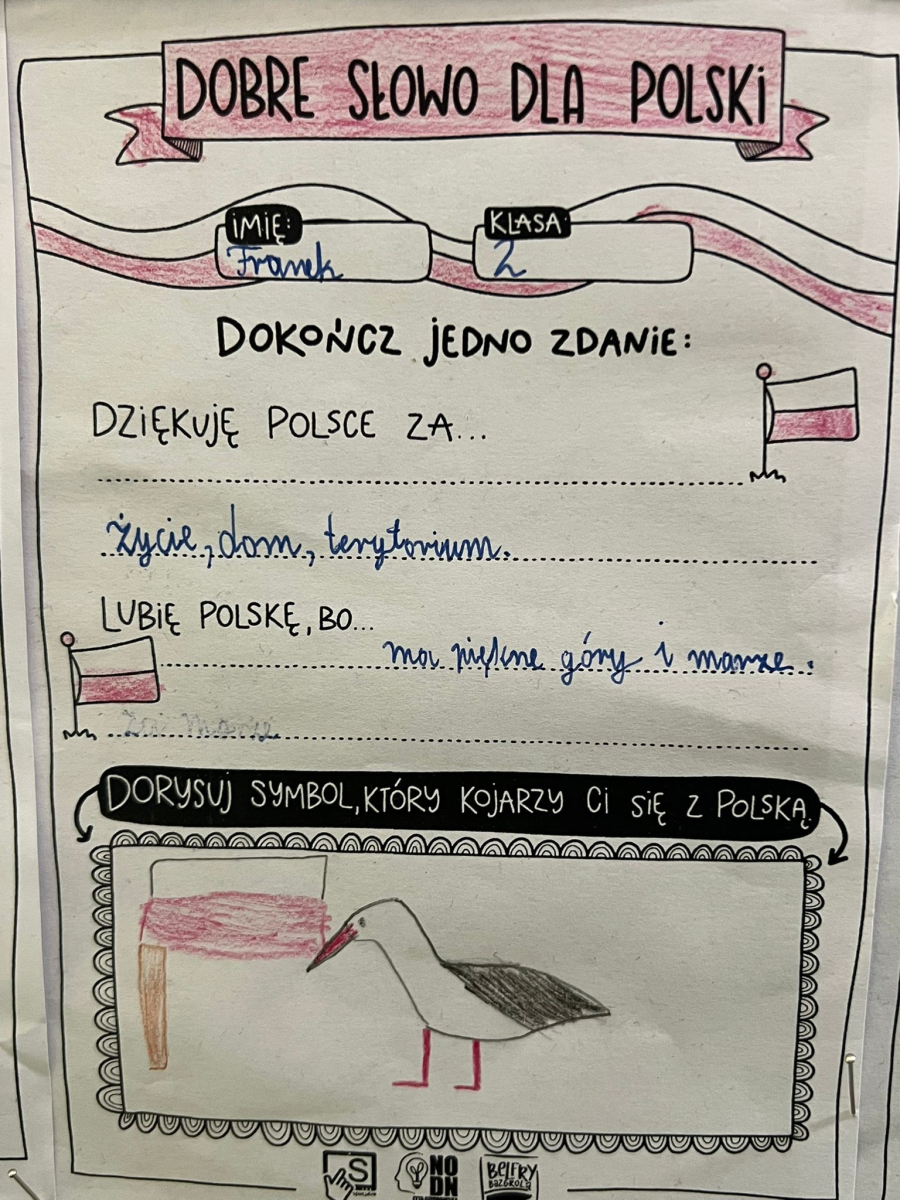 DOBRE SŁOWO DLA POLSKI
IMIĘ:
Franek
KLASA
2
DOKOŃCZ JEDNO ZDANIE:
DZIĘKUJĘ POLSCE ZA...
życie, dom, terytorium.
LUBIĘ POLSKĘ, BO...
ma piękne góry i marze.
DORYSUJ SYMBOL, KTÓRY KOJARZY CI SIĘ Z POLSKĄ.
S
NO
DN
BELFRY
BAZGROLĄ